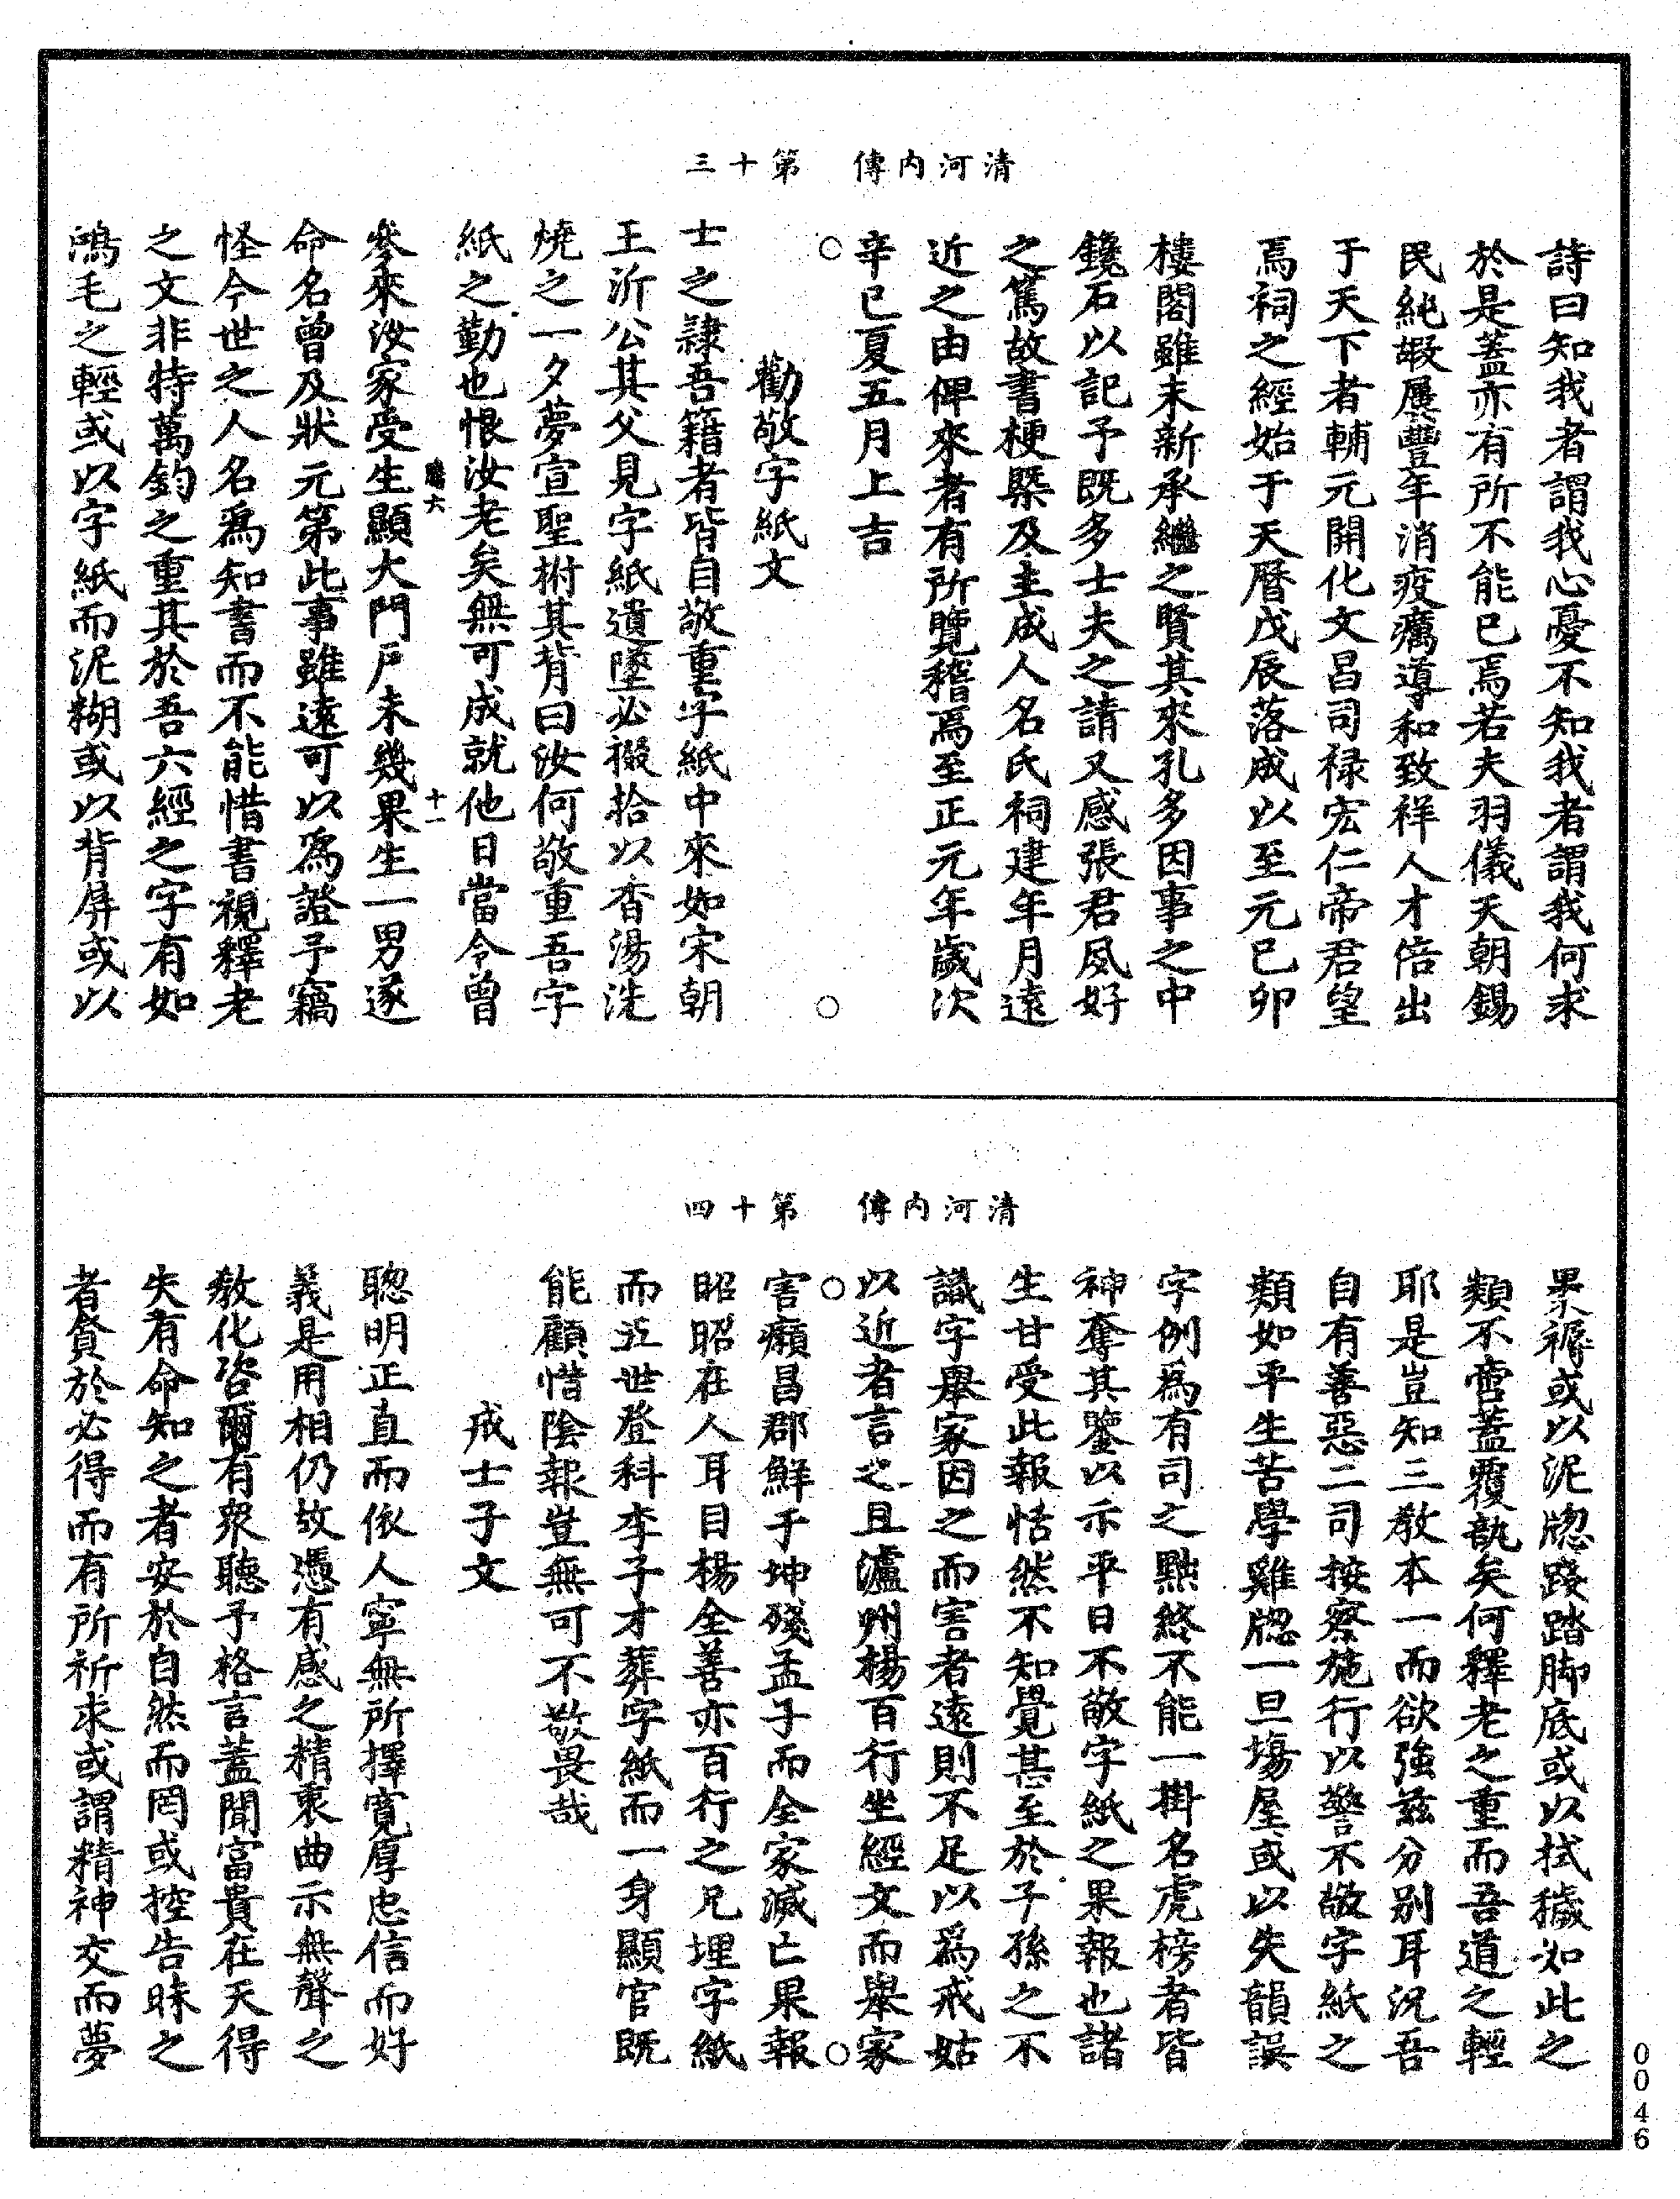 清河內傳　第十三
詩曰知我者謂我心憂不知我者謂我何求
於是蓋亦有所不能已焉若夫羽儀天朝錫
民純嘏屢豐年消疫癘導和致祥人才倍出
于天下者輔元開化文昌司禄宏仁帝君望
焉祠之經始于天曆戊辰落成以至元己卯
樓閣雖未新承繼之賢其來孔多因事之中
鑱石以記予既多士夫之請又感張君夙好
之篤故書梗槩及主成人名氏祠建年月遠
近之由俾來者有所覽稽焉至正元年歲次
辛巳夏五月上吉
○　○
勸敬字紙文
士之隷吾籍者皆自敬重字紙中來如宋朝
王沂公其父見字紙遺墜必掇拾以香湯洗
燒之一夕夢宣聖拊其背曰汝何敬重吾字
紙之勤也恨汝老矣無可成就他日當令曾
六　十一
參來汝家受生顯大門戶未幾果生一男遂
命名曾及狀元第此事雖遠可以爲證予竊
怪今世之人名爲知書而不能惜書視釋老
之文非特萬鈞之重其於吾六經之字有如
鴻毛之輕或以字紙而泥糊或以背屏或以
清河內傳　第十四
果褥或以泥牕踐踏脚底或以拭穢如此之
類不啻蓋覆瓿矣何釋老之重而吾道之輕
耶是豈知三教本一而欲強兹分别耳況吾
自有善惡二司按察施行以警不敬字紙之
類如平生苦學雞牕一旦塲屋或以失韻誤
字例爲有司之㸃終不能一掛名虎榜者皆
神奪其鑒以示平日不敬字紙之果報也諸
生甘受此報恬然不知覺甚至於子孫之不
識字舉家因之而害者遠則不足以爲戒姑
以近者言之且瀘州楊百行坐經文而舉家
○　○
害癩昌郡鮮于坤殘孟子而全家滅亡果報
昭昭在人耳目楊全善亦百行之兄埋字紙
而五世登科李子才葬字紙而一身顯官既
能顧惜陰報豈無可不敬畏哉
戒士子文
聰明正直而依人寧無所擇寬厚忠信而好
義是用相仍故憑有感之精衷曲示無聲之
教化咨爾有衆聽予格言蓋聞富貴在天得
失有命知之者安於自然而罔或控告昧之
者貪於必得而有所祈求或謂精神交而夢
0046